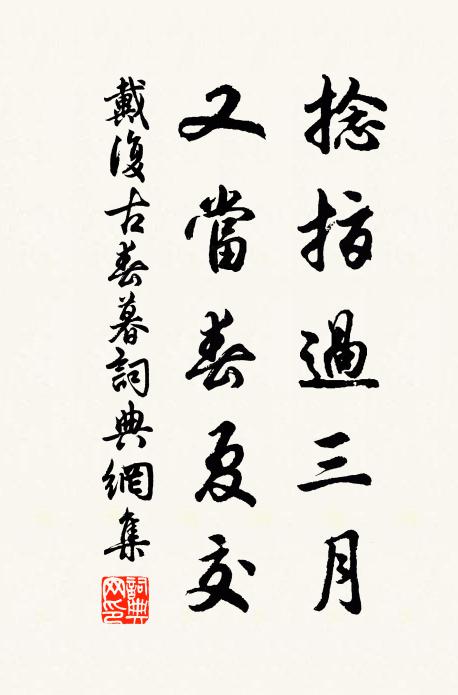 捻指過三月
又當春夏交
戴復古春暮詞典網集
詞典網印